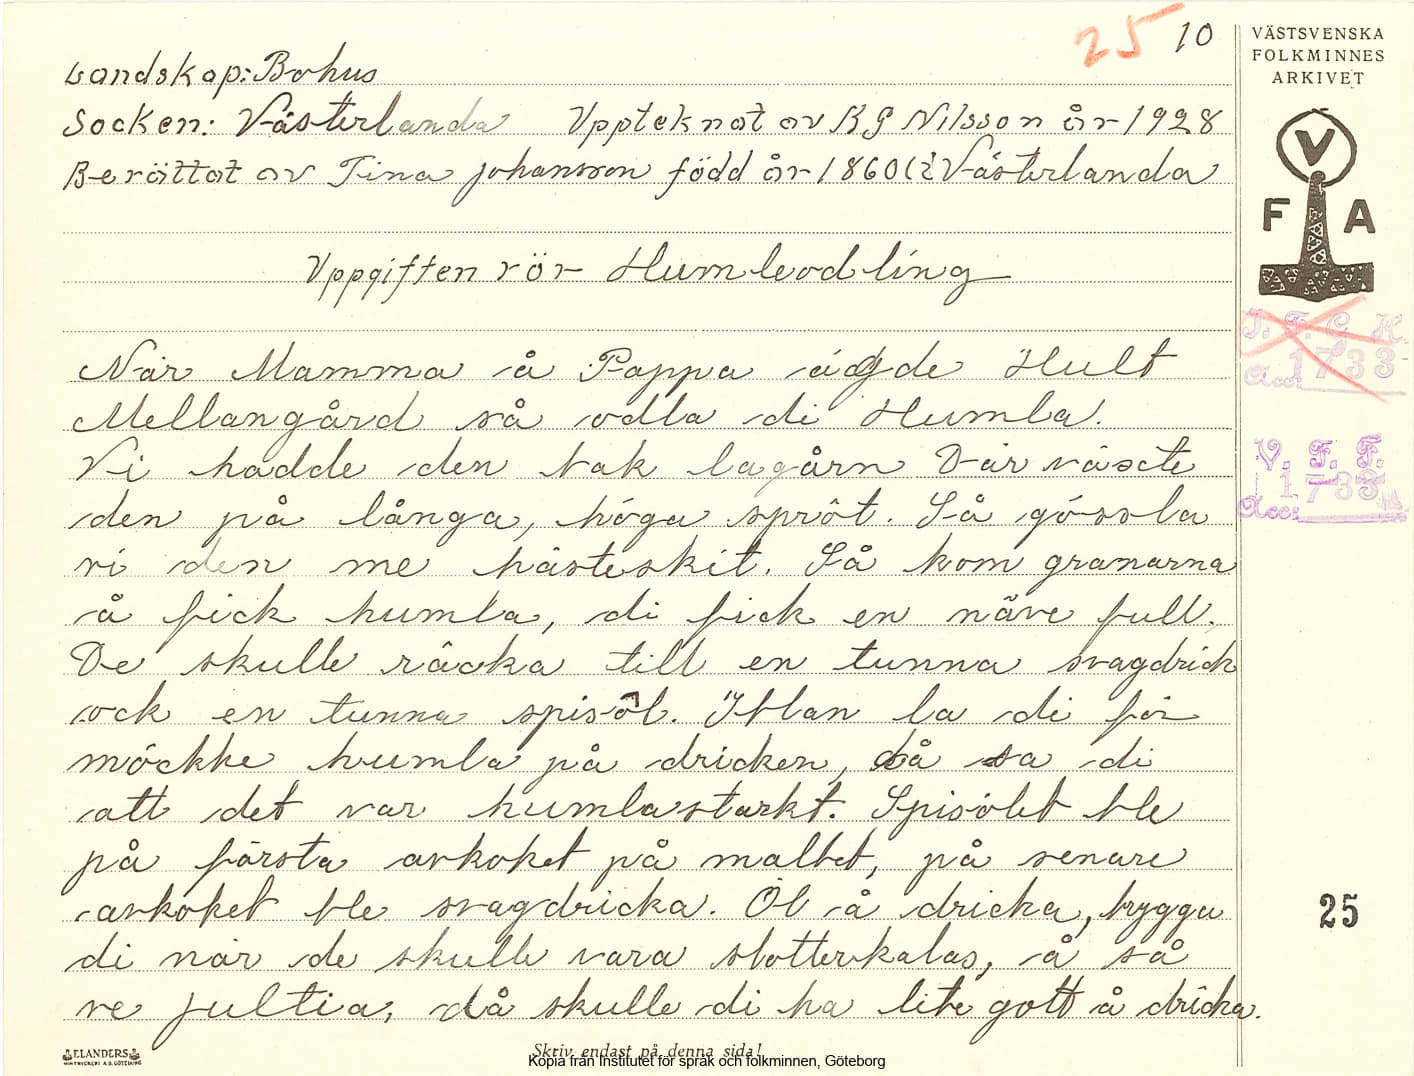 25 10
VÄSTSVENSKA
FOLKMINNES
ARKIVET
V
F A
Landskap: Bohus
Socken: Västerlanda Uppteknat av K G Nilsson år 1928
Berättat av Tina Johansson född år 1860 i Västerlanda
Uppgiften rör Humleodling
När Mamma å Pappa ägde Hult
Mellangård så odla di Humla.
Vi hadde den bak lagårn Där växte
den på långa, höga spröt. Så gössla
vi den me hästeskit. Så kom granarna
å fick humla, di fick en näve full.
De skulle räcka till en tunna svagdrick
ock en tunna spisöl. Iblan la di för
möckke humla på dricken, då sa di
att det var humlastarkt. Spisölet ble
på första avkoket på maltet, på senare
avkoket ble svagdricka. Öl å dricka, brygga
di när de skulle vara slotterkalas, å så
ve jultia, då skulle di ha lite gott å dricka.
I. F. G. H.
Acc. 1733
V. F. F.
Acc: 1733
25
ELANDERS
Skriv endast på denna sida!
Kopia från Institutet för språk och folkminnen, Göteborg